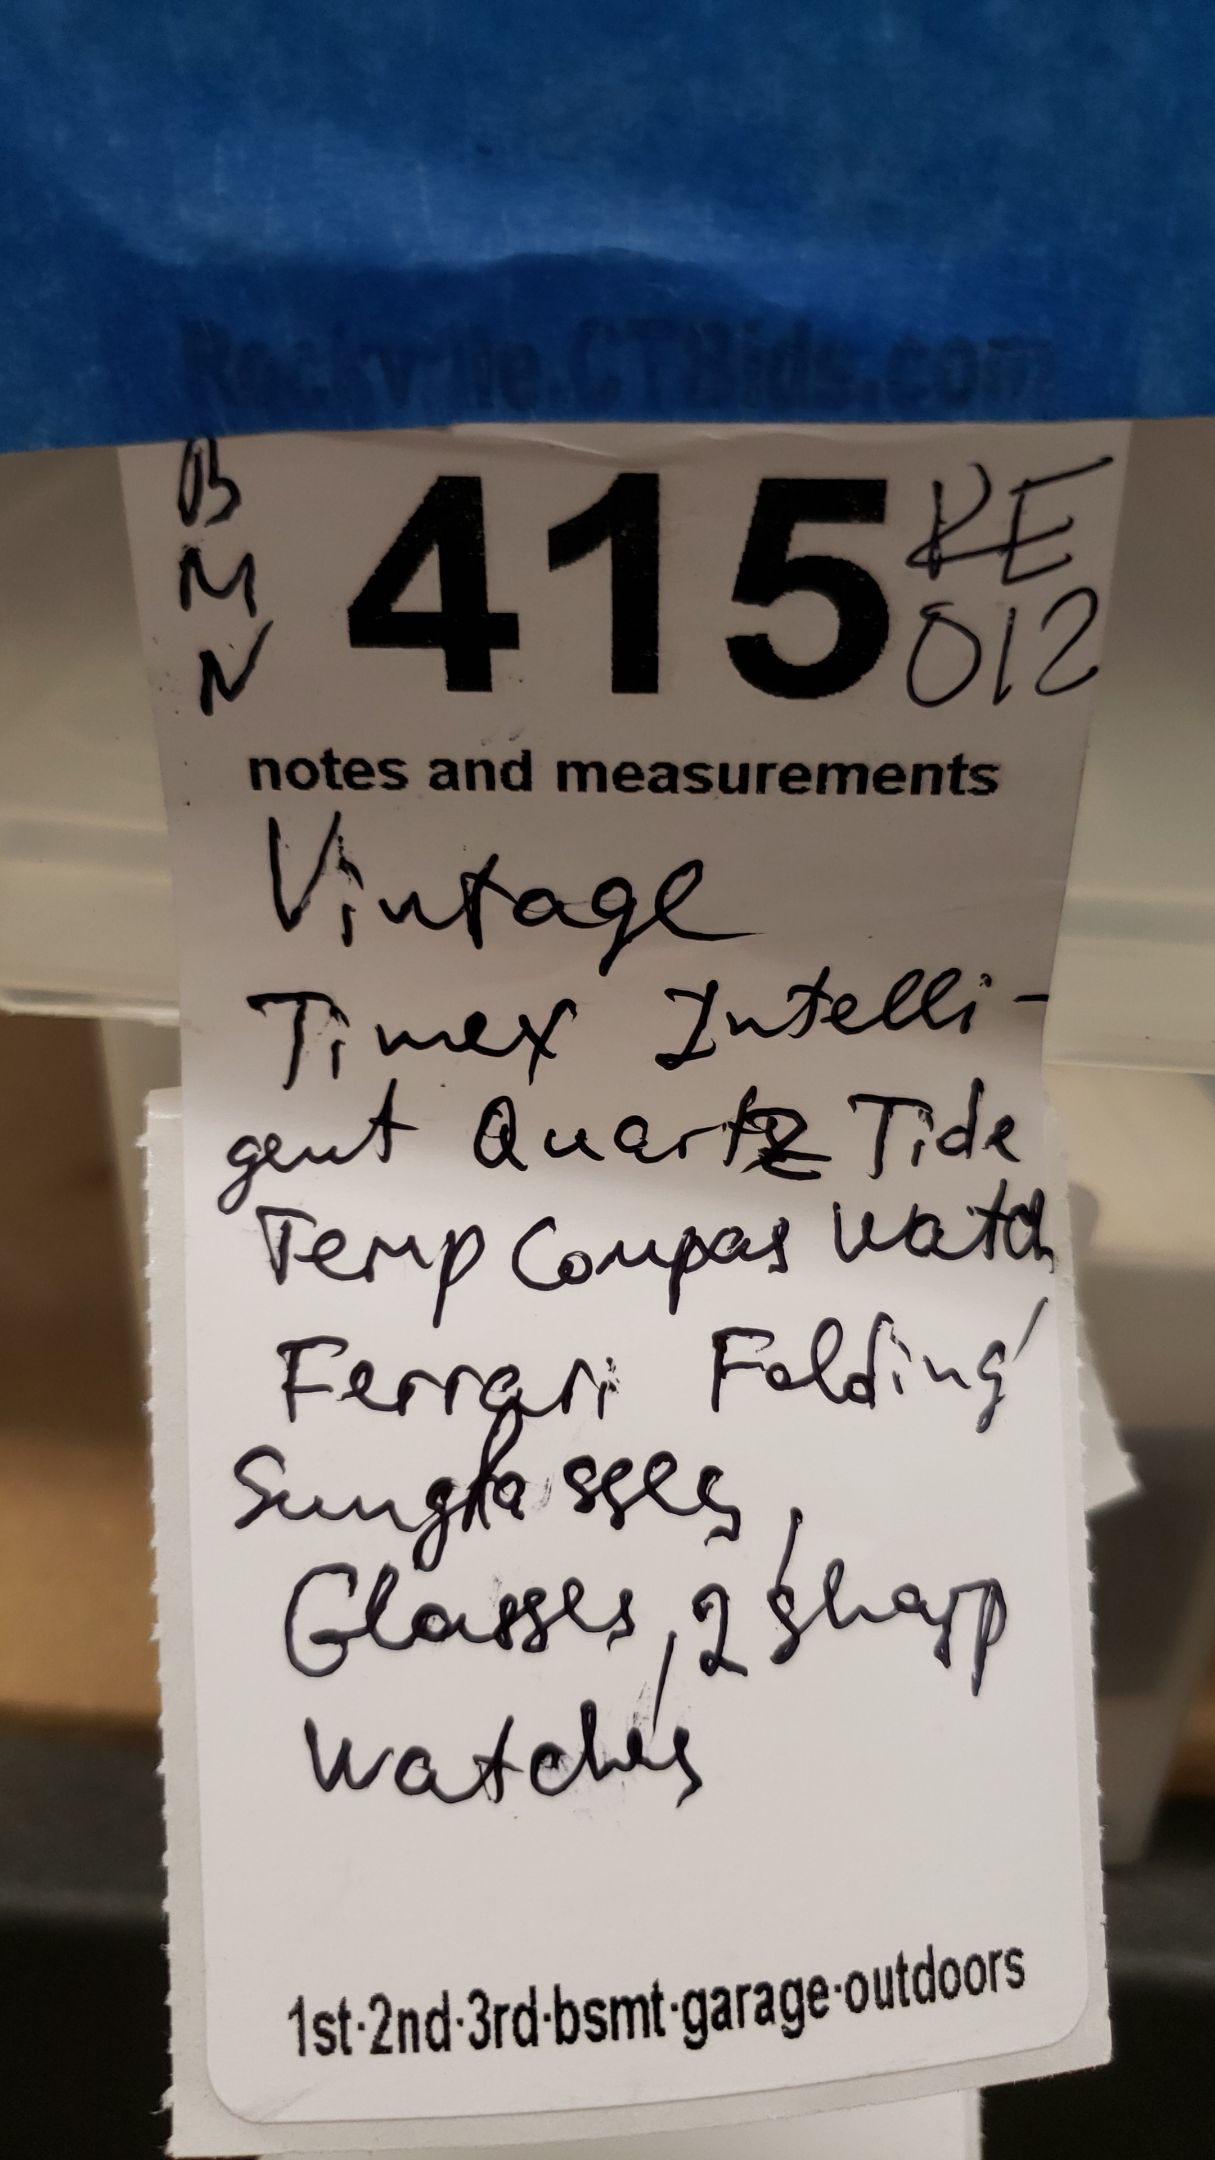 Rockville.CTBids.com
B
M
N
415
KE
012
notes and measurements
Vintage
Timex Intelli-
gent Quartz Tide
Temp Compas Watch
Ferrari Folding
Sunglasses,
Glasses, 2 sharp
watches
1st·2nd·3rd·bsmt·garage·outdoors